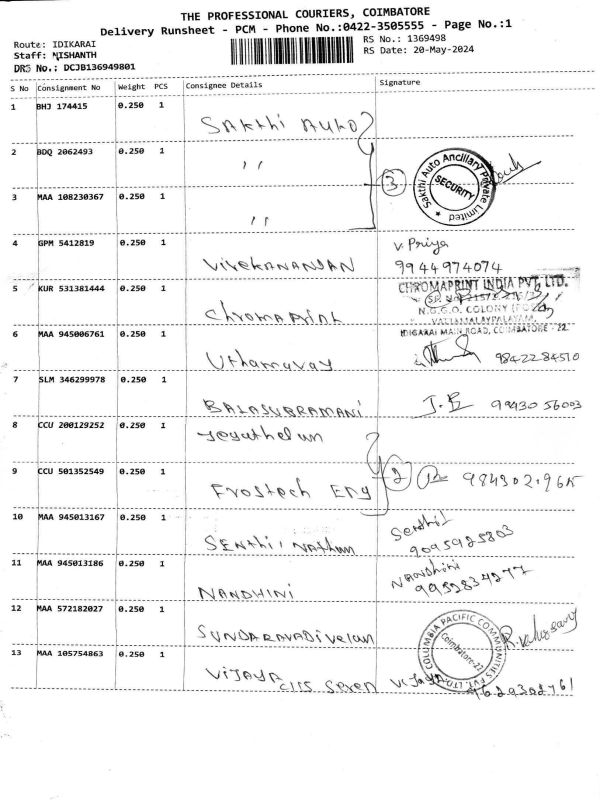 THE PROFESSIONAL COURIERS, COIMBATORE
Delivery Runsheet - PCM - Phone No.:0422-3505555 - Page No.:1
Route: IDIKARAI
Staff: NISHANTH
DRS No.: DCJB136949801
RS No.: 1369498
RS Date: 20-May-2024
S No Consignment No Weight PCS Consignee Details Signature
1 BHJ 174415 0.250 1 Sakthi Auto
2 BDQ 2062493 0.250 1 ,, 3 Sakthi Auto Ancillary Private Limited SECURITY
3 MAA 108230367 0.250 1 ,,
4 GPM 5412819 0.250 1 VIVEKANANDAN V. Priya
9944974074
5 KUR 531381444 0.250 1 Chromaprint CHROMAPRINT INDIA PVT. LTD.
N.G.G.O. COLONY
IDIGARAI MAIN ROAD, COIMBATORE - 22.
6 MAA 945006761 0.250 1 9842284510
7 SLM 346299978 0.250 1 BALASUBRAMANI J.B 99430 56003
8 CCU 200129252 0.250 1
9 CCU 501352549 0.250 1 Frostech Eng 2
10 MAA 945013167 0.250 1 Senthil Nathan Senthil
9095925803
11 MAA 945013186 0.250 1 NANDHINI Nandhini
9952834277
12 MAA 572182027 0.250 1 SUNDARAVADIVELAN
COLUMBIA PACIFIC COMMUNITIES PVT. LTD. Coimbatore-22
13 MAA 105754863 0.250 1 VIJAYA Vijaya
9629302761